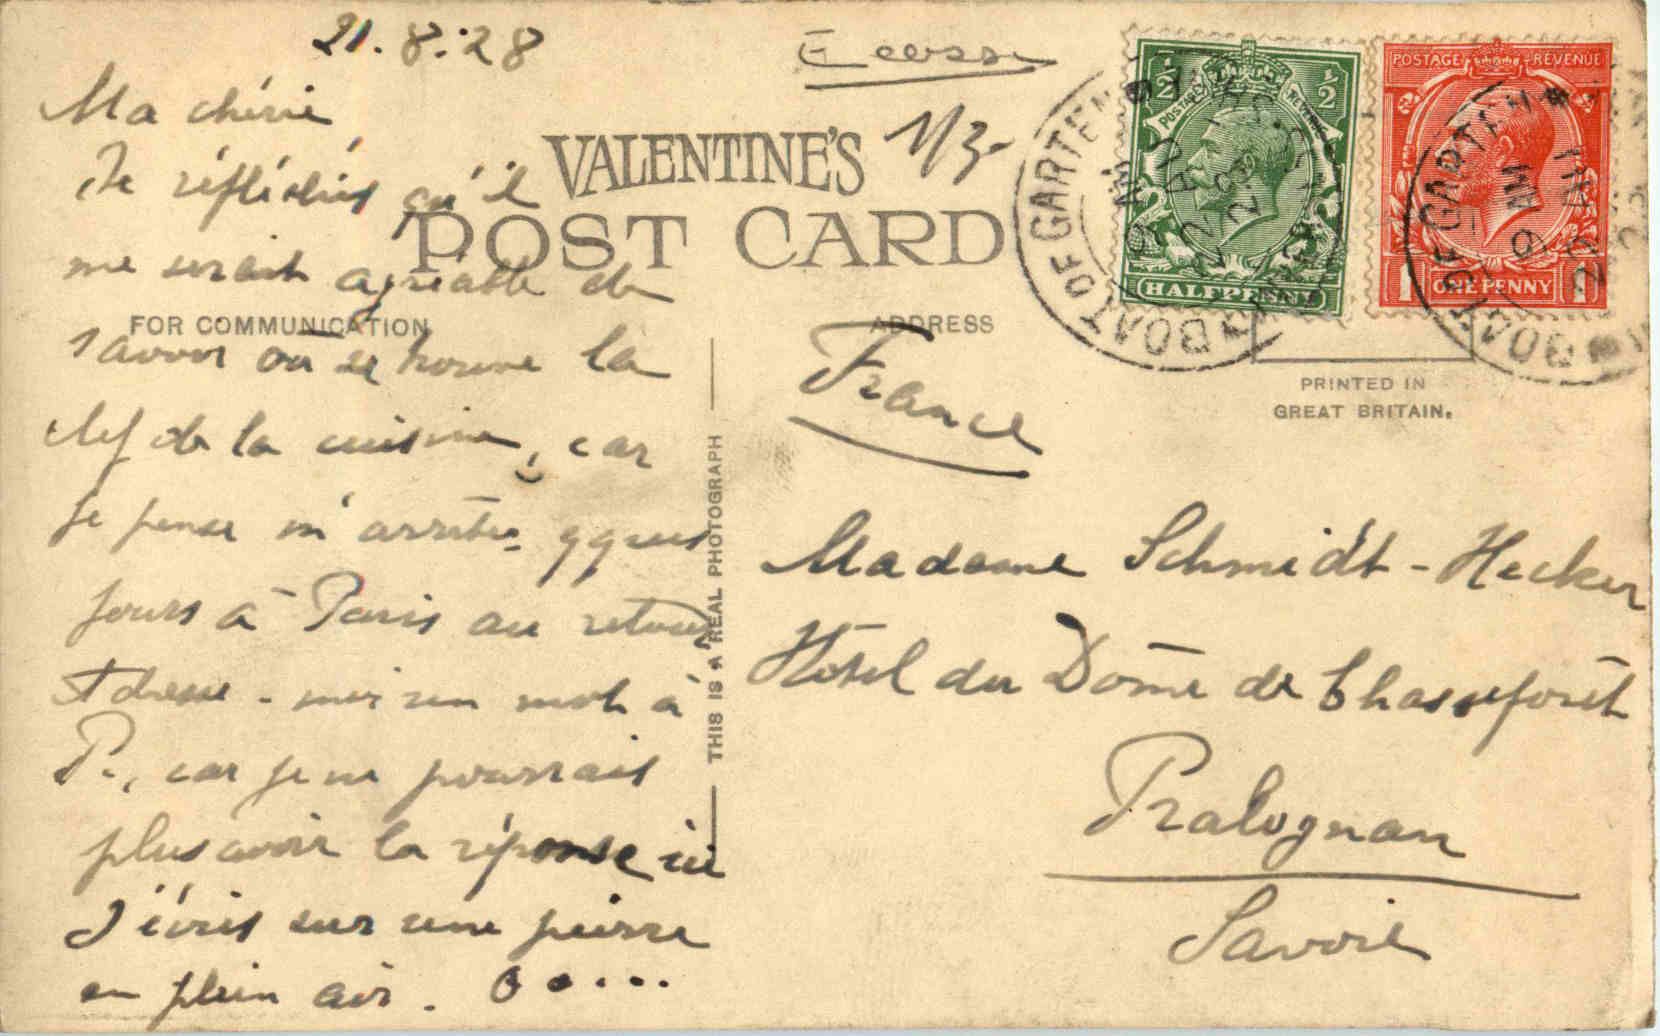 21.8.28
Ecosse
1/3-
Ma chérie,
Je réfléchis qu'il
me serait agréable de
savoir où se trouve la
clef de la cuisine, car
je pense m'arrêter qques
jours à Paris au retour
Adresse-moi un mot à
P., car je ne pourrais
plus avoir la réponse ici
J'écris sur une pierre
en plein air.
VALENTINE'S
POST CARD
FOR COMMUNICATION
ADDRESS
THIS IS A REAL PHOTOGRAPH
POSTAGE REVENUE
½ ½
HALFPENNY
POSTAGE REVENUE
1 ONE PENNY 1
BOAT OF GARTEN
9 AM
22 AU
28
BOAT OF GARTEN
9 AM
22
PRINTED IN
GREAT BRITAIN.
France
Madame Schmidt-Hecker
Hôtel du Dôme de Chasseforêt
Pralognan
Savoie